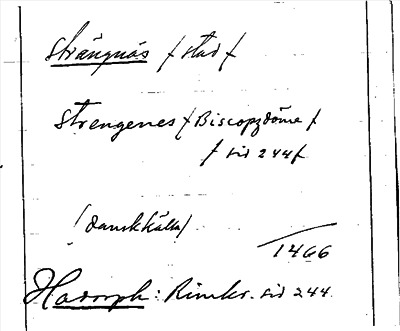 Strängnäs / stad /
Strengenes / Biscopzdöme /
/ sid 244 /
/ dansk källa /
1466
Hadorph: Rimkr. sid 244